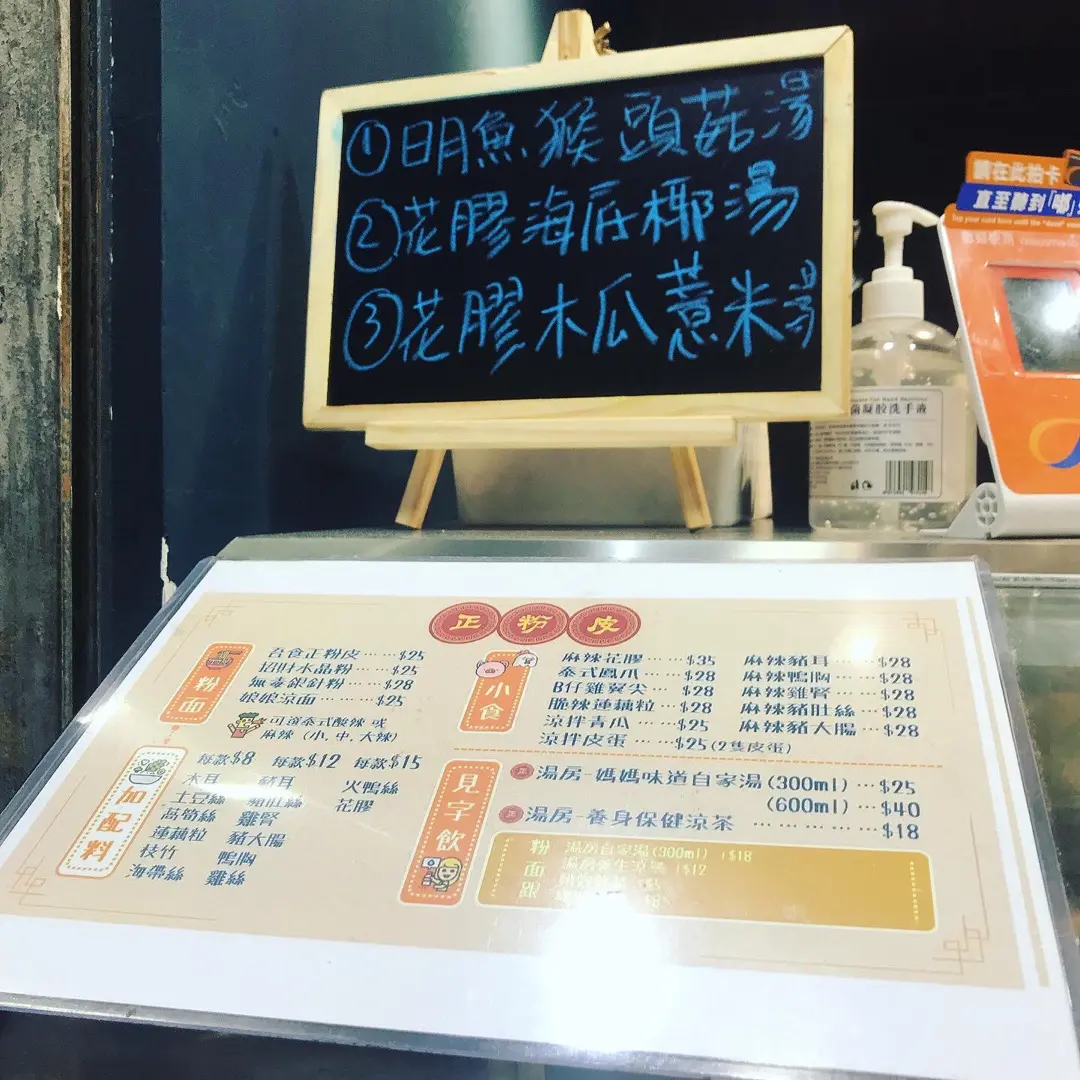 ①明魚猴頭菇湯
②花膠海底椰湯
③花膠木瓜薏米湯
請在此拍卡
直至聽到「嘟」
Tap your card until the "dood"
菌凝胶洗手液
正粉皮
粉面
吞食正粉皮……$25
招財水晶粉……$25
無毒銀針粉……$28
娘娘涼面……$25
可滾泰式酸辣 或
麻辣 (小, 中, 大辣)
加配料
每款$8 每款$12 每款$15
木耳 豬耳 火鴨絲
土豆絲 豬肚絲 花膠
萵筍絲 雞腎
蓮藕粒 豬大腸
枝竹 鴨胸
海帶絲 雞絲
小食
麻辣花膠……$35
泰式鳳爪……$28
B仔雞翼尖…$28
脆辣蓮藕粒…$28
涼拌青瓜……$25
涼拌皮蛋……$25(2隻皮蛋)
麻辣豬耳……$28
麻辣鴨胸……$28
麻辣雞腎……$28
麻辣豬肚絲…$28
麻辣豬大腸…$28
見字飲
正 湯房-媽媽味道自家湯(300ml)…$25
(600ml)…$40
正 湯房-養身保健涼茶………………$18
粉面跟
湯房自家湯(300ml) +$18
+$12